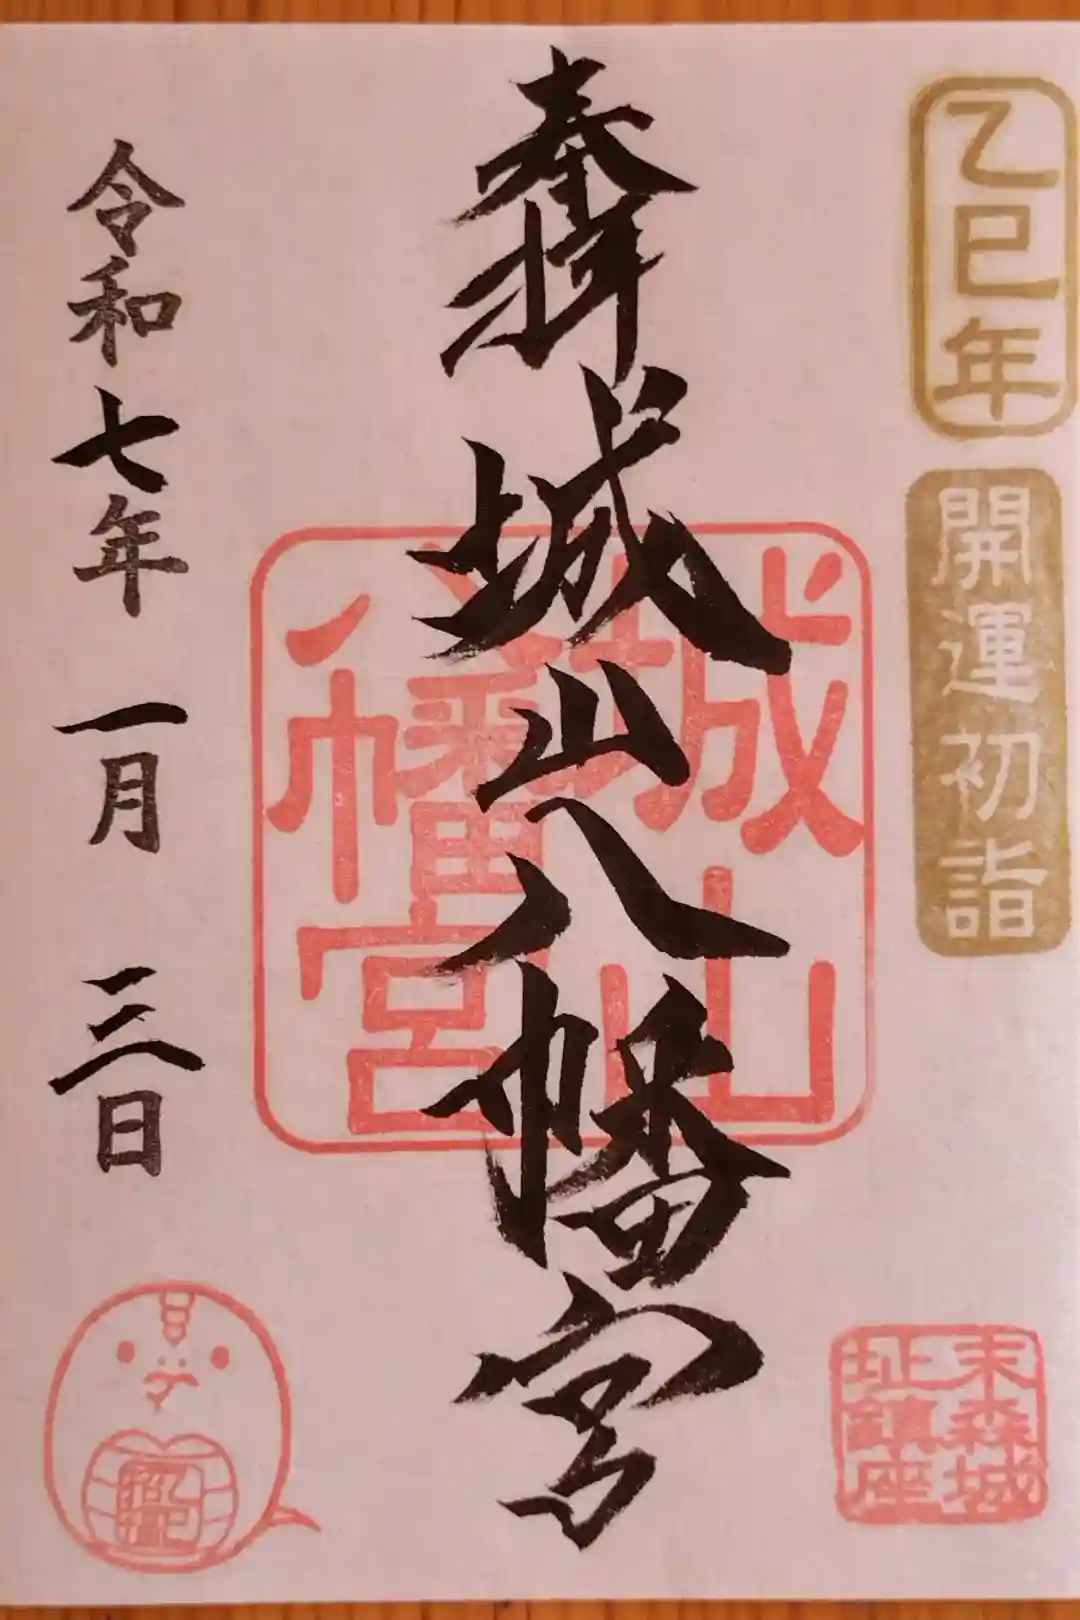 乙巳年
開運初詣
末森城
址鎮座
奉拝
城山八幡宮
城山
八幡宮
令和七年 一月 三日